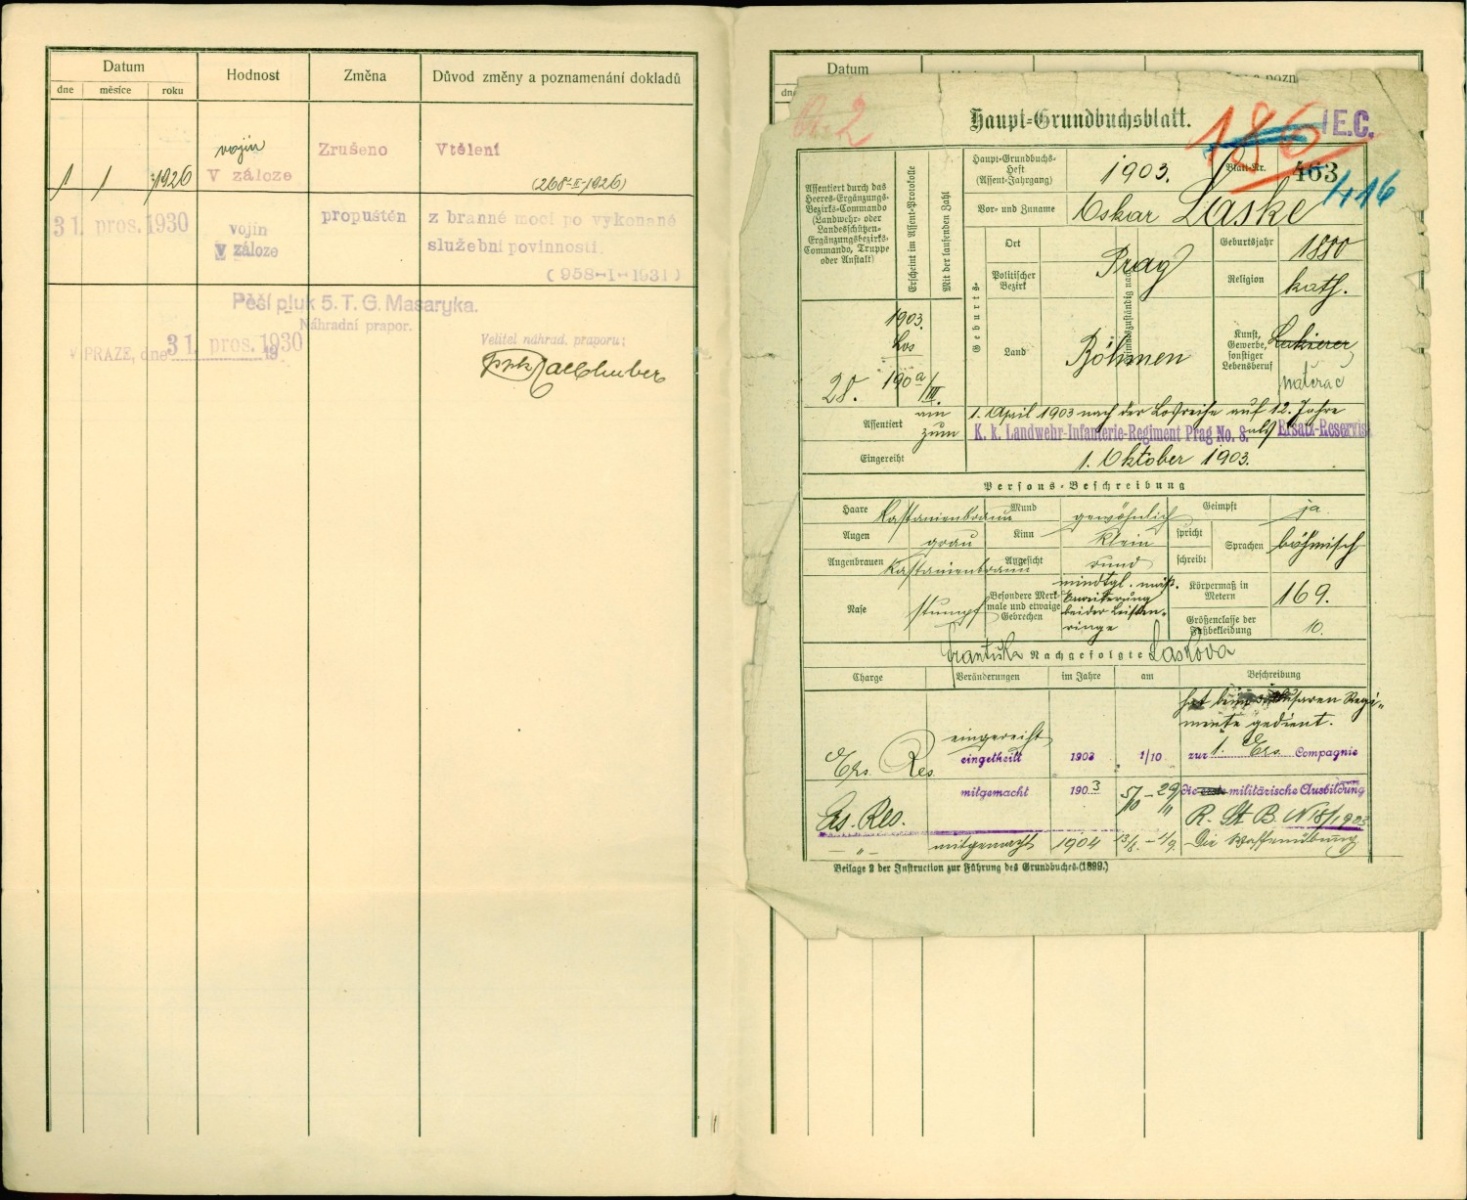 Datum
Hodnost
Změna
Důvod změny a poznamenání dokladů
dne
měsíce
roku
vojín
1 1 1926 V záloze Zrušeno Vtělení
(268-II-1926)
31. pros. 1930 vojín propuštěn z branné moci po vykonané
V záloze služební povinnosti.
(958-I-1931)
Pěší pluk 5. T. G. Masaryka.
Náhradní prapor.
V PRAZE, dne 31. pros. 1930
19
Velitel náhrad. praporu:
Datum
Haupt-Grundbuchsblatt.
186
I E.C.
2
Assentiert durch das
Heeres-Ergänzungs-
Bezirks-Commando
(Landwehr- oder
Landesschützen-
Ergänzungsbezirks-
Commando, Truppe
oder Anstalt)
Erscheint im Assent-Protokolle
Mit der laufenden Zahl
Haupt-Grundbuchs-
Heft
(Assent-Jahrgang)
1903.
Blatt-Nr.
463
416
Vor- und Zuname
Oskar Laske
Geburts-
Ort
Politischer
Bezirk
Land
Prag
Böhmen
Heimatszuständig nach
Geburtsjahr
1880
Religion
kath.
Kunst,
Gewerbe,
sonstiger
Lebensberuf
Lakierer
natěrač
1903.
Los
28.
190a/III.
Assentiert
am
zum
1. April 1903 nach der Losreihe auf 12 Jahre
K. k. Landwehr-Infanterie-Regiment Prag No. 8. als Ersatz-Reservist
Eingereiht
1. Oktober 1903.
Persons-Beschreibung
Haare
Kastanienbraun
Mund
gewöhnlich
Geimpft
ja
Augen
grau
Kinn
klein
spricht
schreibt
Sprachen
böhmisch
Augenbrauen
Kastanienbraun
Angesicht
rund
Nase
stumpf
Besondere Merk-
male und etwaige
Gebrechen
Erweiterung
beider Leisten-
ringe
Körpermaß in
Metern
169.
Größenclasse der
Fußbekleidung
10.
Nachgefolgte
Laskova
Charge
Veränderungen
im Jahre
am
Beschreibung
mente gedient.
eingereiht
Ers. Res. eingetheilt 1903 1/10 zur 1. Ers. Compagnie
mitgemacht 1903 5/10 – 29/11 die militärische Ausbildung
Ers. Res.
R. St. B. N 18/1903
– " – mitgemacht 1904 13/8. – 1/9. Die Waffenübung
Beilage 2 der Instruction zur Führung des Grundbuches. (1899.)